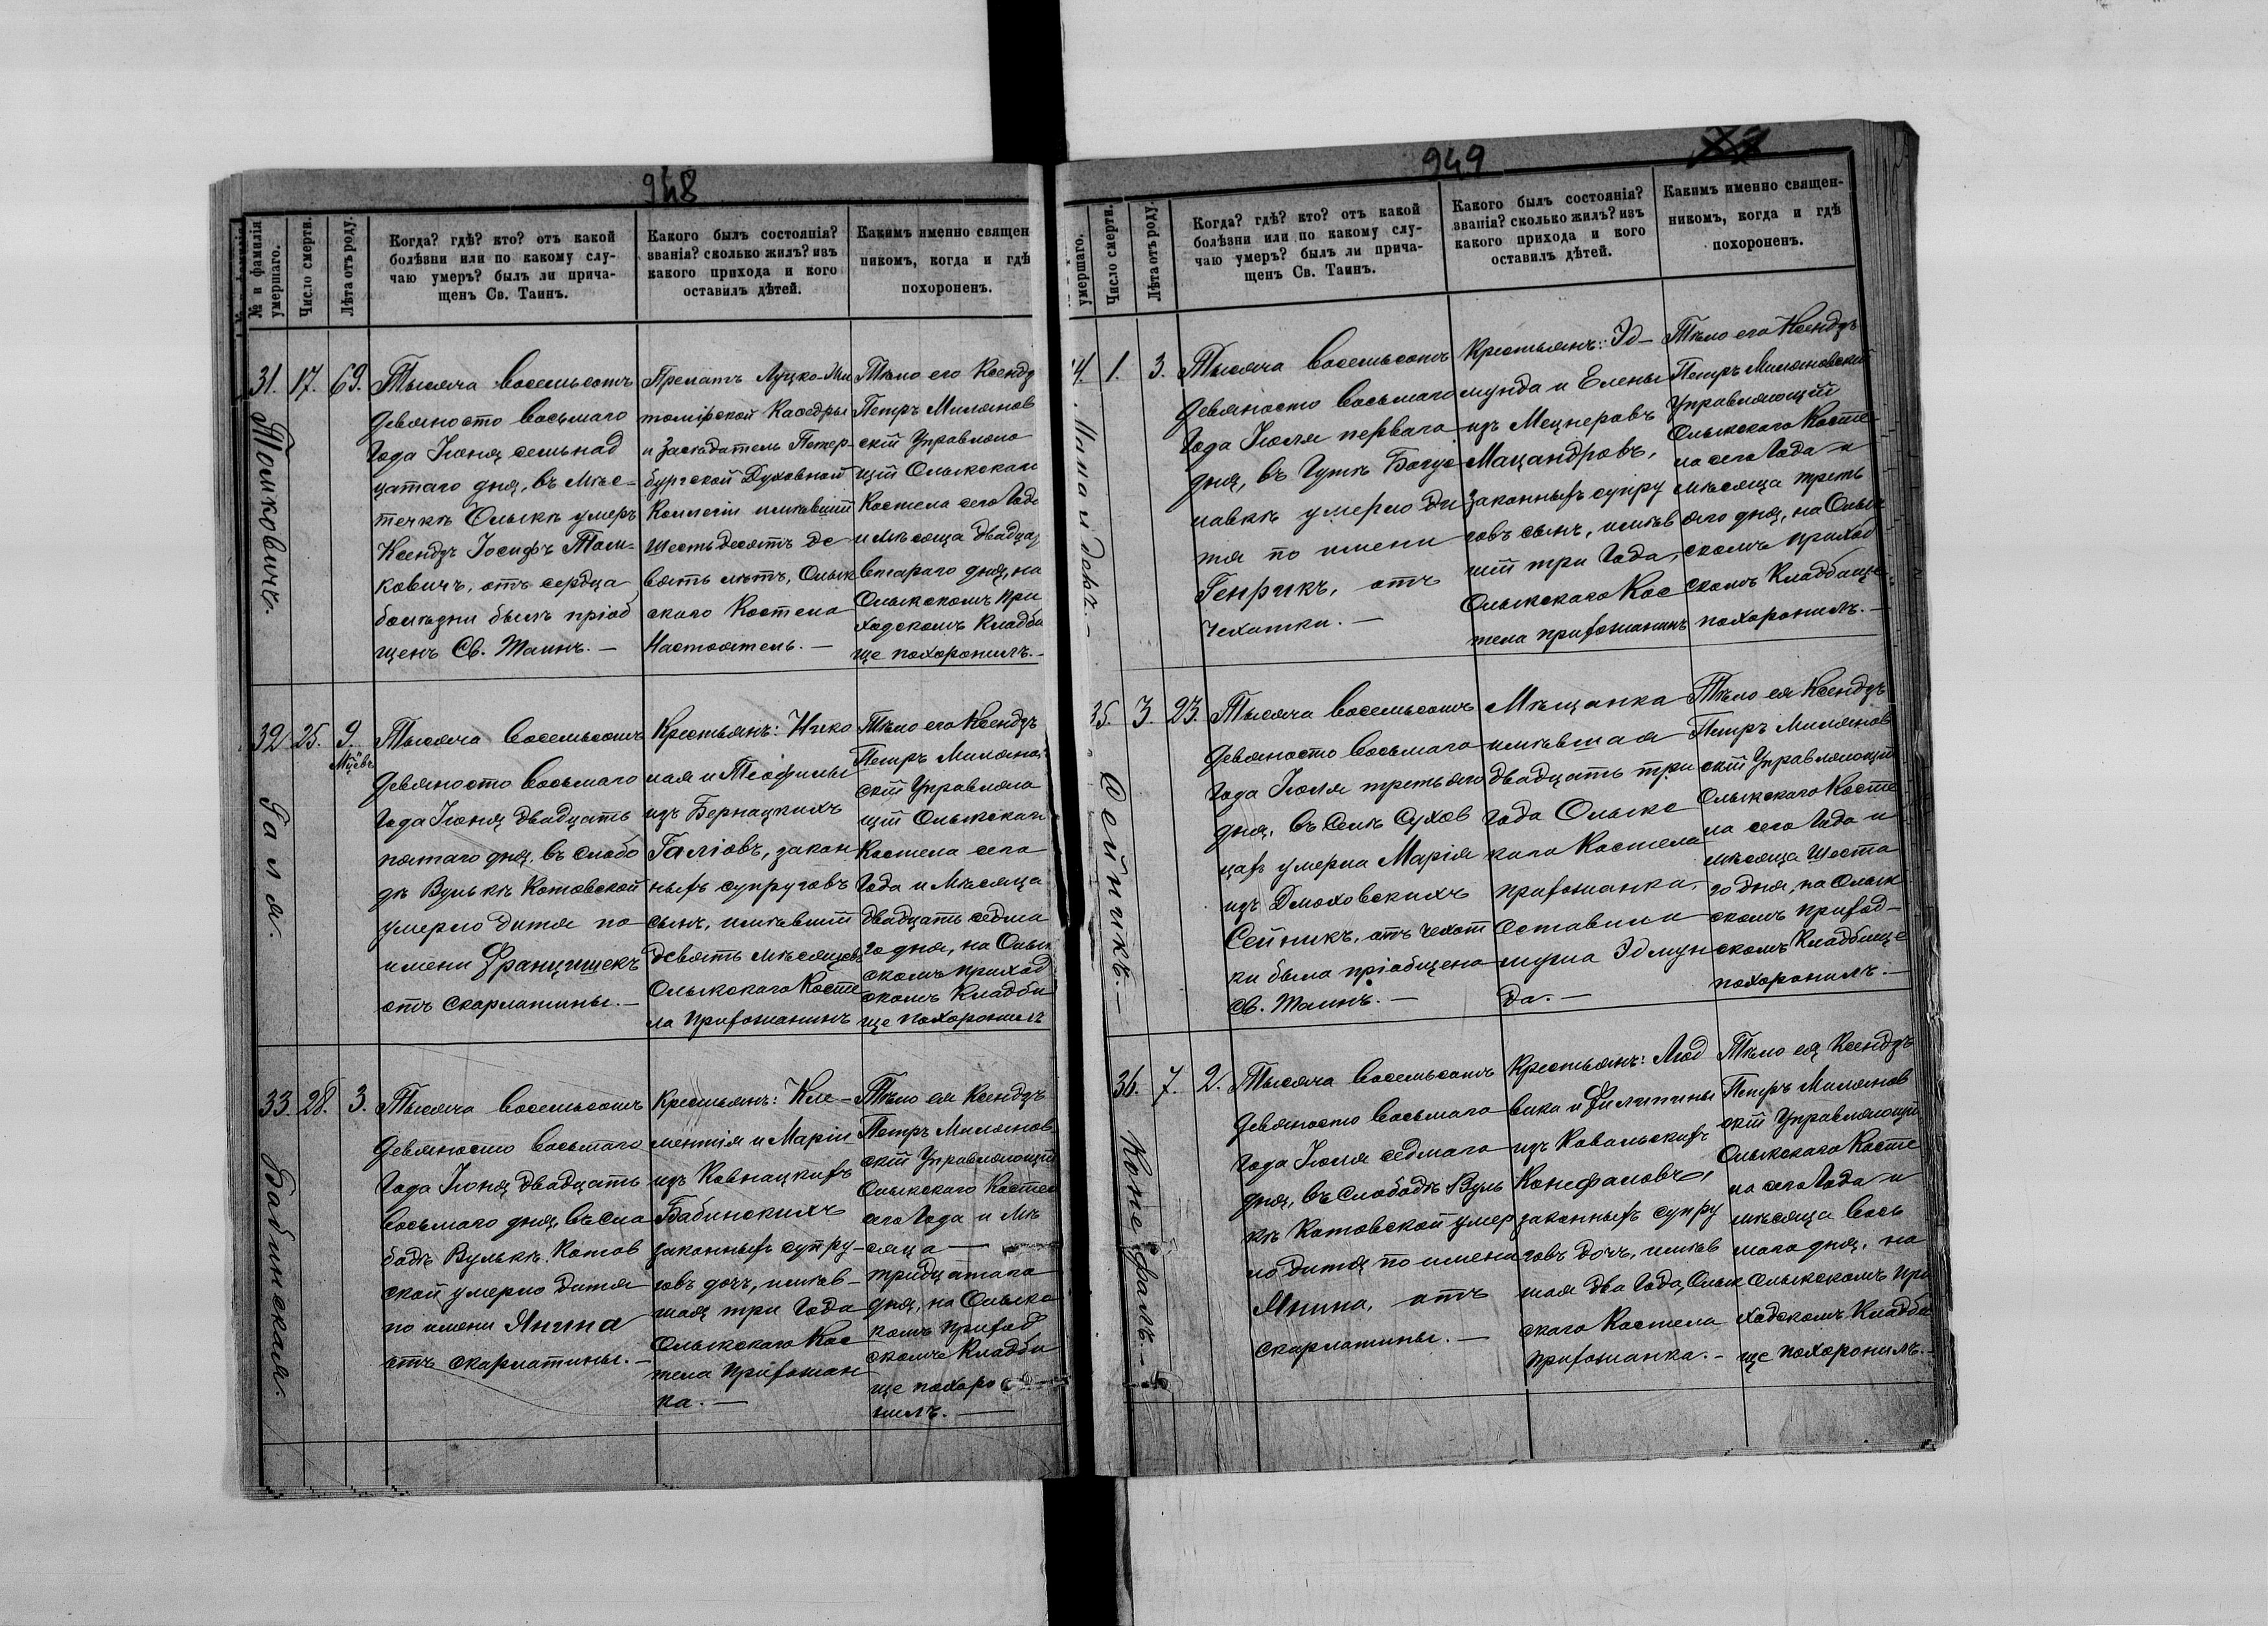 948
№ и фамилія умершаго.
Число смерти.
Лѣта отъ роду.
Когда? гдѣ? кто? отъ какой
болѣзни или по какому слу-
чаю умеръ? былъ ли прича-
щенъ Св. Таинъ.
Какого былъ состоянія?
званія? сколько жилъ? изъ
какого прихода и кого
оставилъ дѣтей.
Какимъ именно священ
никомъ, когда и гдѣ
похороненъ.
31.
Томковичъ.
17.
69.
Тысяча восемьсотъ
девяносто восьмаго
Года Іюня семьнад
цатаго дня, въ Мѣс-
течкѣ Олыкѣ умеръ
Ксендзъ Іосифъ Том-
ковичъ, отъ сердца
болѣзни былъ пріоб
щенъ Св. Таинъ. —
Прелатъ Луцко-Жи
томірской Каѳедры
и Засѣдатель Петер-
бургской Духовной
Коллегіи имѣвшій
Шестьдесятъ де
вять лѣтъ, Олык
скаго Костела
Настоятель. —
Тѣло его Ксендз
Петръ Милянов
скій Управляю
щій Олыкскаго
Костела сего Года
и мѣсяца двадца
втораго дня, на
Олыкскомъ При
ходскомъ Кладби
ще похоронилъ. —
32
Галя.
25.
9.
Мцевъ
Тысяча восемьсотъ
девяносто восьмаго
Года Іюня двадцать
пятаго дня, въ слобо
дѣ Вулькѣ Котовской
умерло дитя по
имени Францишекъ
отъ скарлатины. —
Крестьянъ: Нико
лая и Теофилы
изъ Бернацкихъ
Галіовъ, закон
ныхъ супруговъ
сынъ, имѣвшій
девять мѣсяцевъ
Олыкскаго Косте
ла прихожанинъ
Тѣло его Ксендзъ
Петръ Милянов
скій Управляю
щій Олыкскаго
Костела сего
Года и Мѣсяца
двадцать седма
го дня, на Олык
скомъ приход
скомъ Кладби
ще похоронилъ
33.
Бабинская.
28.
3.
Тысяча восемьсотъ
девяносто восьмаго
Года Іюня двадцать
восьмаго дня, въ сло
бодѣ Вулькѣ Котов
ской умерло дитя
по имени Янина
отъ скарлатины. —
Крестьянъ: Кле-
ментія и Маріи
изъ Ковнацкихъ
Бабинскихъ
законныхъ супру-
говъ дочь, имѣв-
шая три Года
Олыкскаго Кос
тела прихожан
ка. —
Тѣло ея Ксендзъ
Петръ Милянов
скій Управляющій
Олыкскаго Костел
сего Года и Мѣ
сяца —
тридцатаго
дня, на Олыкс
комъ приход
скомъ Кладби
ще похоро
нилъ. —
949
умершаго.
Число смерти.
Лѣта отъ роду.
Когда? гдѣ? кто? отъ какой
болѣзни или по какому слу-
чаю умеръ? былъ ли прича-
щенъ Св. Таинъ.
Какого былъ состоянія?
званія? сколько жилъ? изъ
какого прихода и кого
оставилъ дѣтей.
Какимъ именно священ-
никомъ, когда и гдѣ
похороненъ.
4.
1.
3.
Тысяча восемьсотъ
девяносто восьмаго
Года Іюля перваго
дня, въ Гутѣ Богус
лавкѣ умерло ди
тя по имени
Генрикъ, отъ
чехотки. —
Крестьянъ: Эд-
мунда и Елены
изъ Мецнеровъ
Мацандровъ,
законныхъ супру
говъ сынъ, имѣв
шій три Года,
Олыкскаго Кос
тела прихожанинъ
Тѣло его Ксендзъ
Петръ Милянов
Управляющій
Олыкскаго Косте
ла сего Года и
мѣсяца треть
яго дня, на Олык
скомъ приход
скомъ Кладбище
похоронилъ. —
35.
Сейникъ. —
3.
23.
Тысяча восемьсотъ
девяносто восьмаго
Года Іюля третьяго
дня, въ Селѣ Сухов
цахъ умерла Марія
изъ Дмоховскихъ
Сейникъ, отъ чехот
ки была пріобщена
Св. Таинъ. —
Мѣщанка
имѣвшая
двадцать три
года Олыкс
каго Костела
прихожанка.
Оставила
мужа Эдмун
да. —
Тѣло ея Ксендзъ
Петръ Милянов
скій Управляющій
Олыкскаго Косте
ла сего Года и
мѣсяца Шеста
го дня, на Олык
скомъ приход-
скомъ Кладбище
похоронилъ. —
36.
Конефалъ. —
7.
2.
Тысяча восемьсотъ
девяносто восьмаго
Года Іюля седмаго
дня, въ Слободѣ Вуль
кѣ Котовской умер
ло дитя по имени
Янина, отъ
скарлатины. —
Крестьянъ: Люд
вика и Филипины
изъ Ковальскихъ
Конефаловъ,
законныхъ супру
говъ дочь, имѣв
шая два Года, Олык
скаго Костела
прихожанка. —
Тѣло ея Ксендзъ
Петръ Милянов
скій Управляющій
Олыкскаго Косте
ла сего Года и
мѣсяца вось
маго дня, на
Олыкскомъ при
ходскомъ Кладби
ще похоронилъ. —